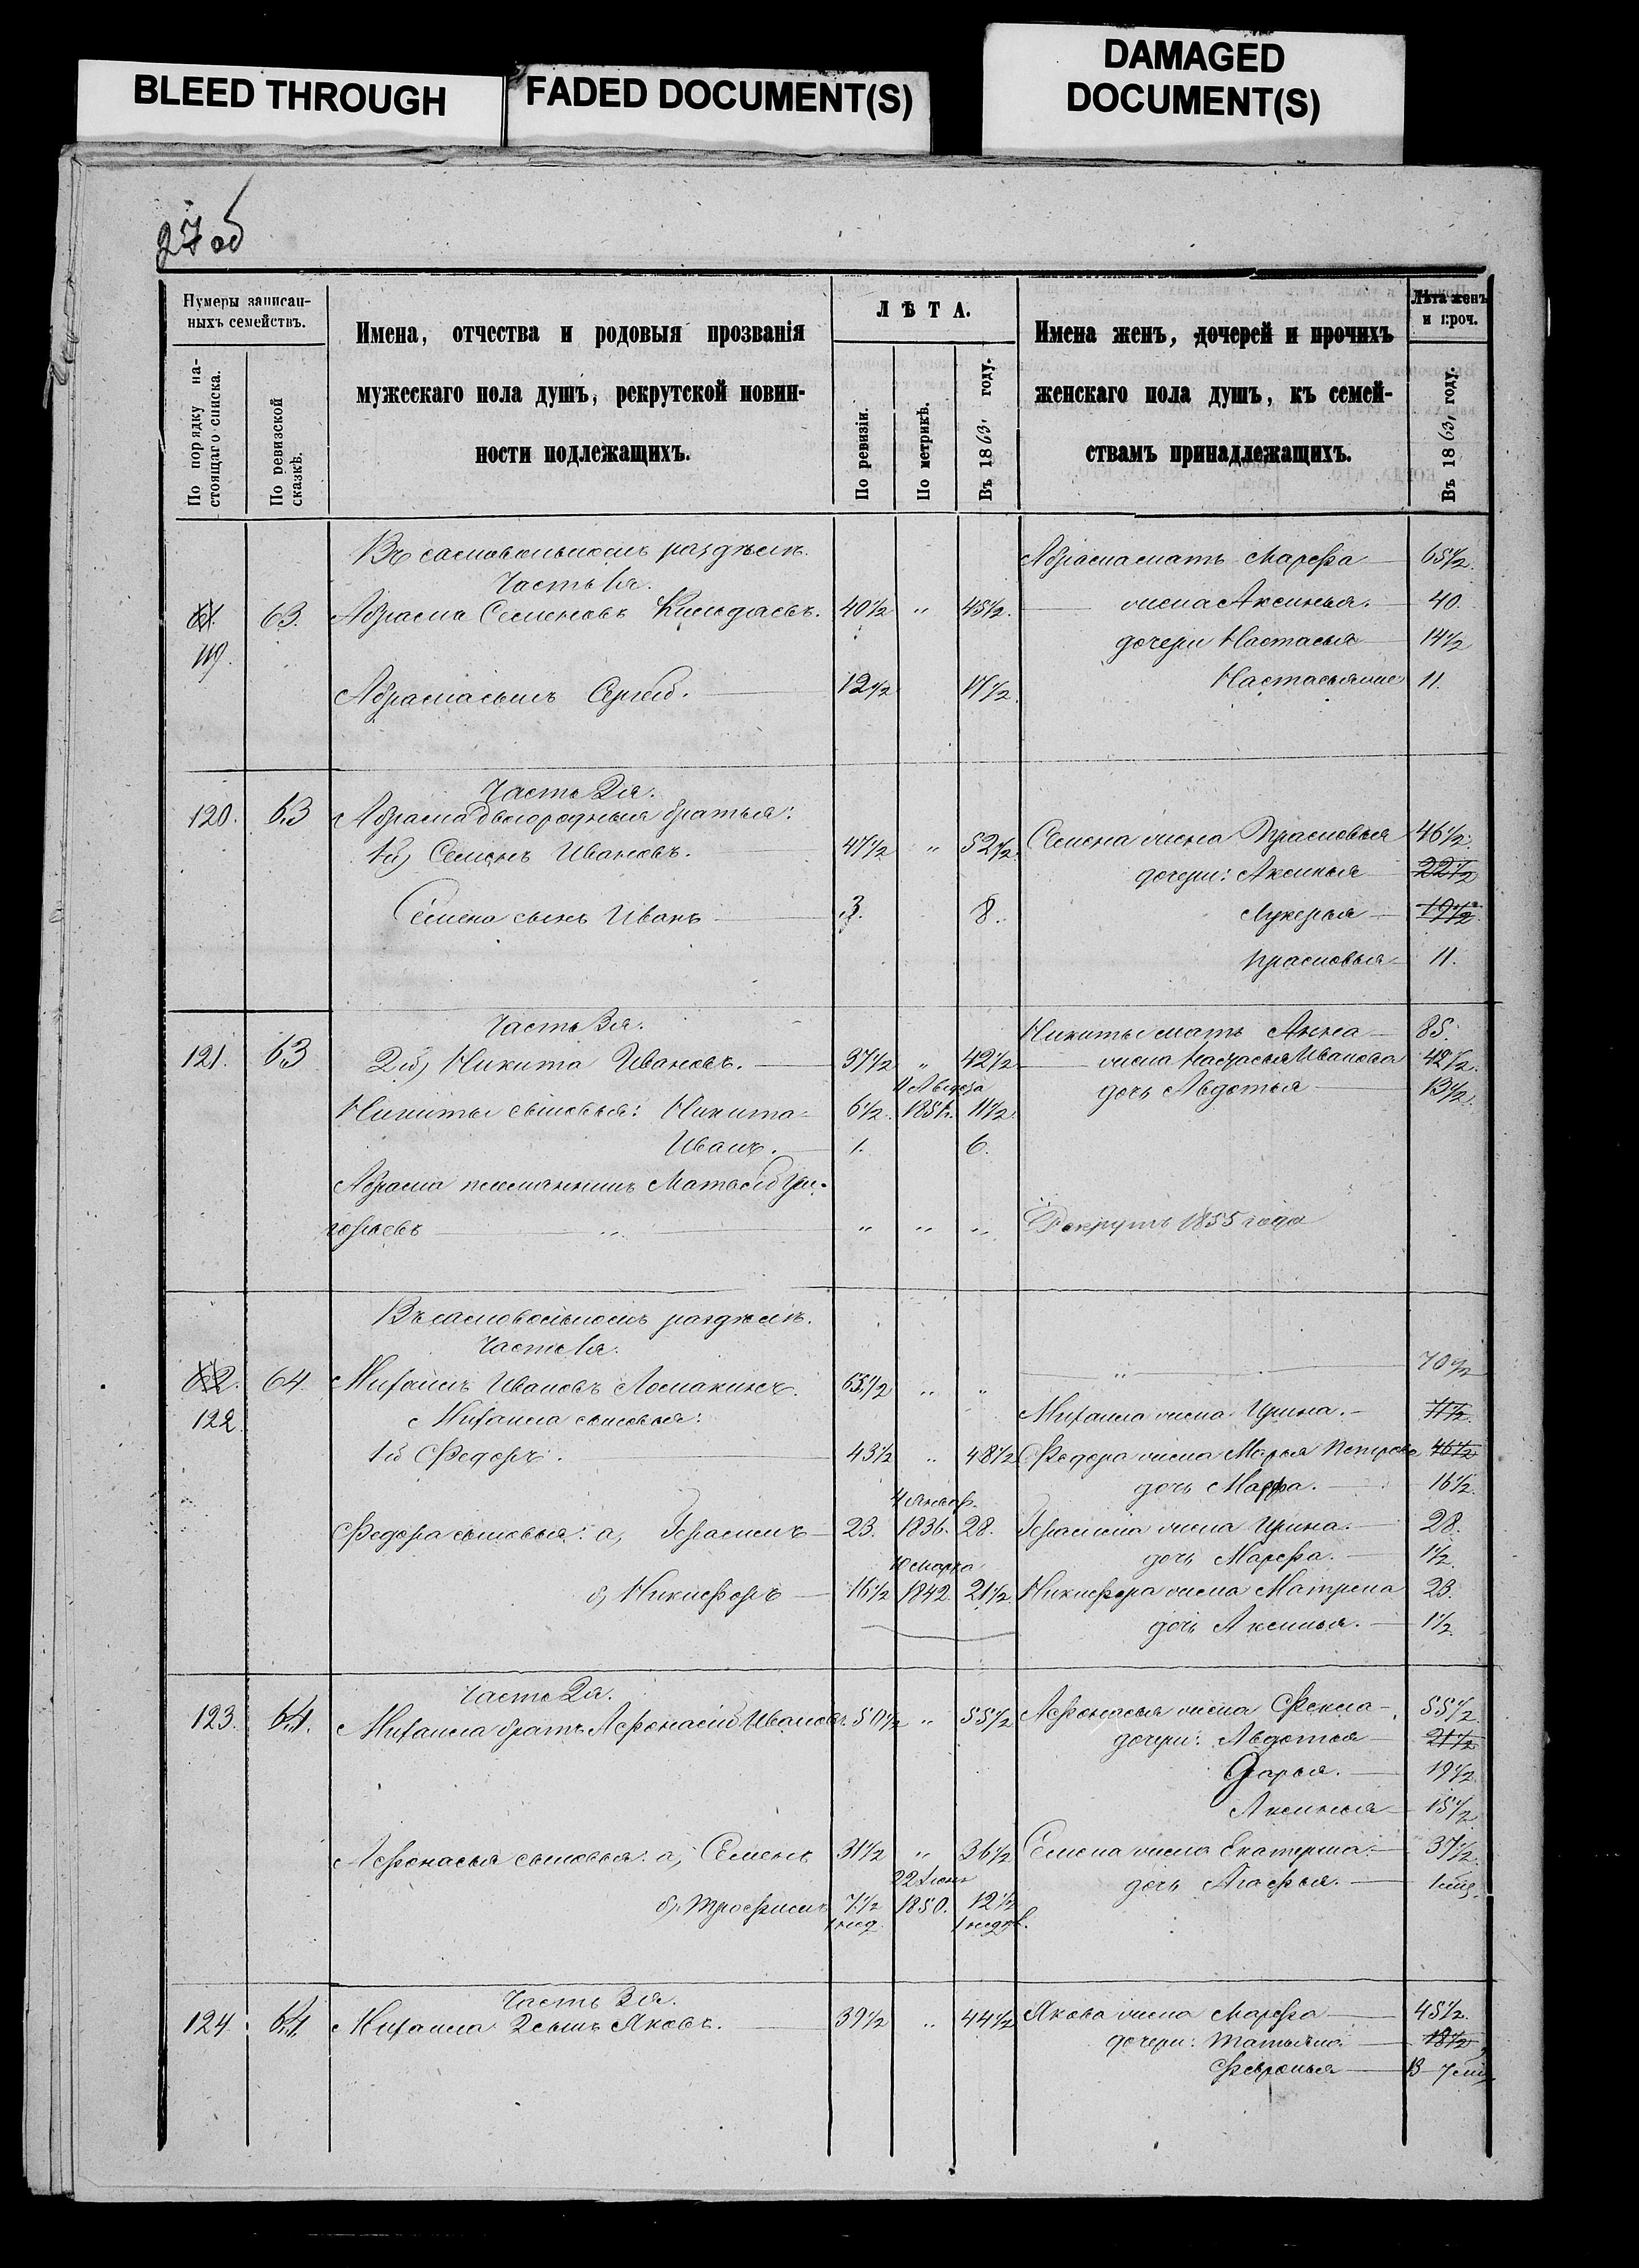 BLEED THROUGH
FADED DOCUMENT(S)
DAMAGED
DOCUMENT(S)
27 об
Нумеры записан-
ныхъ семействъ.
По порядку на-
стоящаго списка.
По ревизской
сказкѣ.
Имена, отчества и родовыя прозванія
мужескаго пола душъ, рекрутской повин-
ности подлежащихъ.
ЛѢТА.
По ревизіи.
По метрикѣ.
Въ 1863, году.
Имена женъ, дочерей и прочихъ
женскаго пола душъ, къ семей-
ствамъ принадлежащихъ.
Лѣта женъ
и проч.
Въ 1863, году.
Въ самовольномъ раздѣлѣ.
Часть 1я.
Абрама мать Марфа 65 1/2
61. 63. Абрама Семеновъ 40 1/2 " 45 1/2.
жена Аксинья. 40.
119.
дочери Настасья 14 1/2
Абрама сынъ Сергѣй. 12 1/2 17 1/2
Настасья 11.
Часть 2я.
120. 63 Абрама двоюродныя братья:
1й, Семенъ Ивановъ. 47 1/2 " 52 1/2
Семена жена Прасковья 46 1/2.
дочери: Аксинья 22 1/2
Семена сынъ Иванъ 3. 8.
Лукерья 19 1/2
Прасковья 11.
Часть 3я.
Никиты мать Анна 85.
121. 63 2й, Никита Ивановъ. 37 1/2 " 42 1/2
жена Настасья Иванова 42 1/2.
дочь Авдотья 13 1/2.
Никиты сыновья: Никита 6 1/2 1851. 11 1/2
Иванъ. 1. 6.
Абрама племянникъ Матвѣй Гри-
горьевъ " " " "
Рекрутъ 1855 года
Въ самовольномъ раздѣлѣ.
Часть 1я.
" 70 1/2
62. 64. Михаилъ Ивановъ Ломакинъ. 65 1/2 " "
122 Михаила сыновья:
Михаила жена Ирина. 71 1/2
1й Федоръ. 43 1/2 " 48 1/2
Федора жена Марья Петрова 46 1/2
дочь Марфа. 16 1/2.
4 Январ.
Федора сыновья: а, Герасимъ 23. 1836. 28.
Герасима жена Ирина. 28.
дочь Марфа. 1 1/2.
10 Марта
б, Никифоръ 16 1/2 1842. 21 1/2
Никифора жена Матрена 23.
дочь Аксинья. 1 1/2
Часть 2я.
123. 64. Михаила братъ Афонасій Ивановъ 50 1/2 " 55 1/2
Афонасья жена Фекла 55 1/2
дочери: Авдотья 21 1/2
Дарья. 19 1/2
Аксинья 15 1/2
Афонасья сыновья: а, Семенъ 31 1/2 " 36 1/2
Семена жена Екатерина 37 1/2
22 Іюня
дочь Агафья.
б, Трофимъ 7 1/2 1850. 12 1/2
1 нед. 1 недѣл.
Часть 3я.
124. 64. Михаила 2 сынъ Яковъ. 39 1/2 " 44 1/2
Якова жена Марфа 45 1/2.
дочери: Татьяна 18 1/2
Февронья